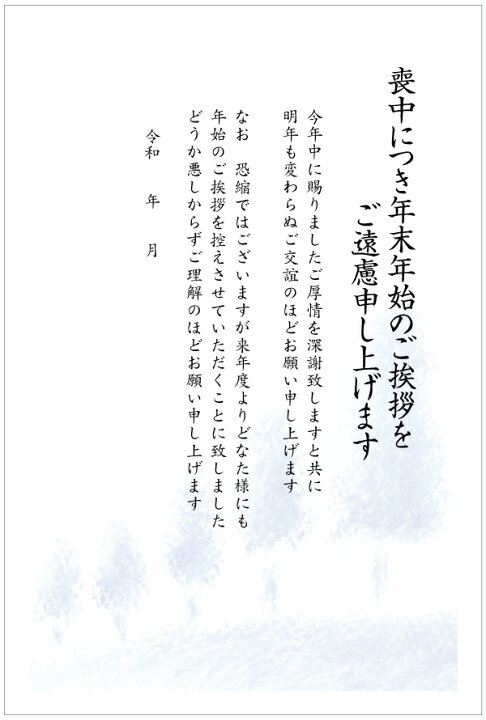 喪中につき年末年始のご挨拶を
ご遠慮申し上げます
今年中に賜りましたご厚情を深謝致しますと共に
明年も変わらぬご交誼のほどお願い申し上げます
なお　恐縮ではございますが来年度よりどなた様にも
年始のご挨拶を控えさせていただくことに致しました
どうか悪しからずご理解のほどお願い申し上げます
令和　年　月